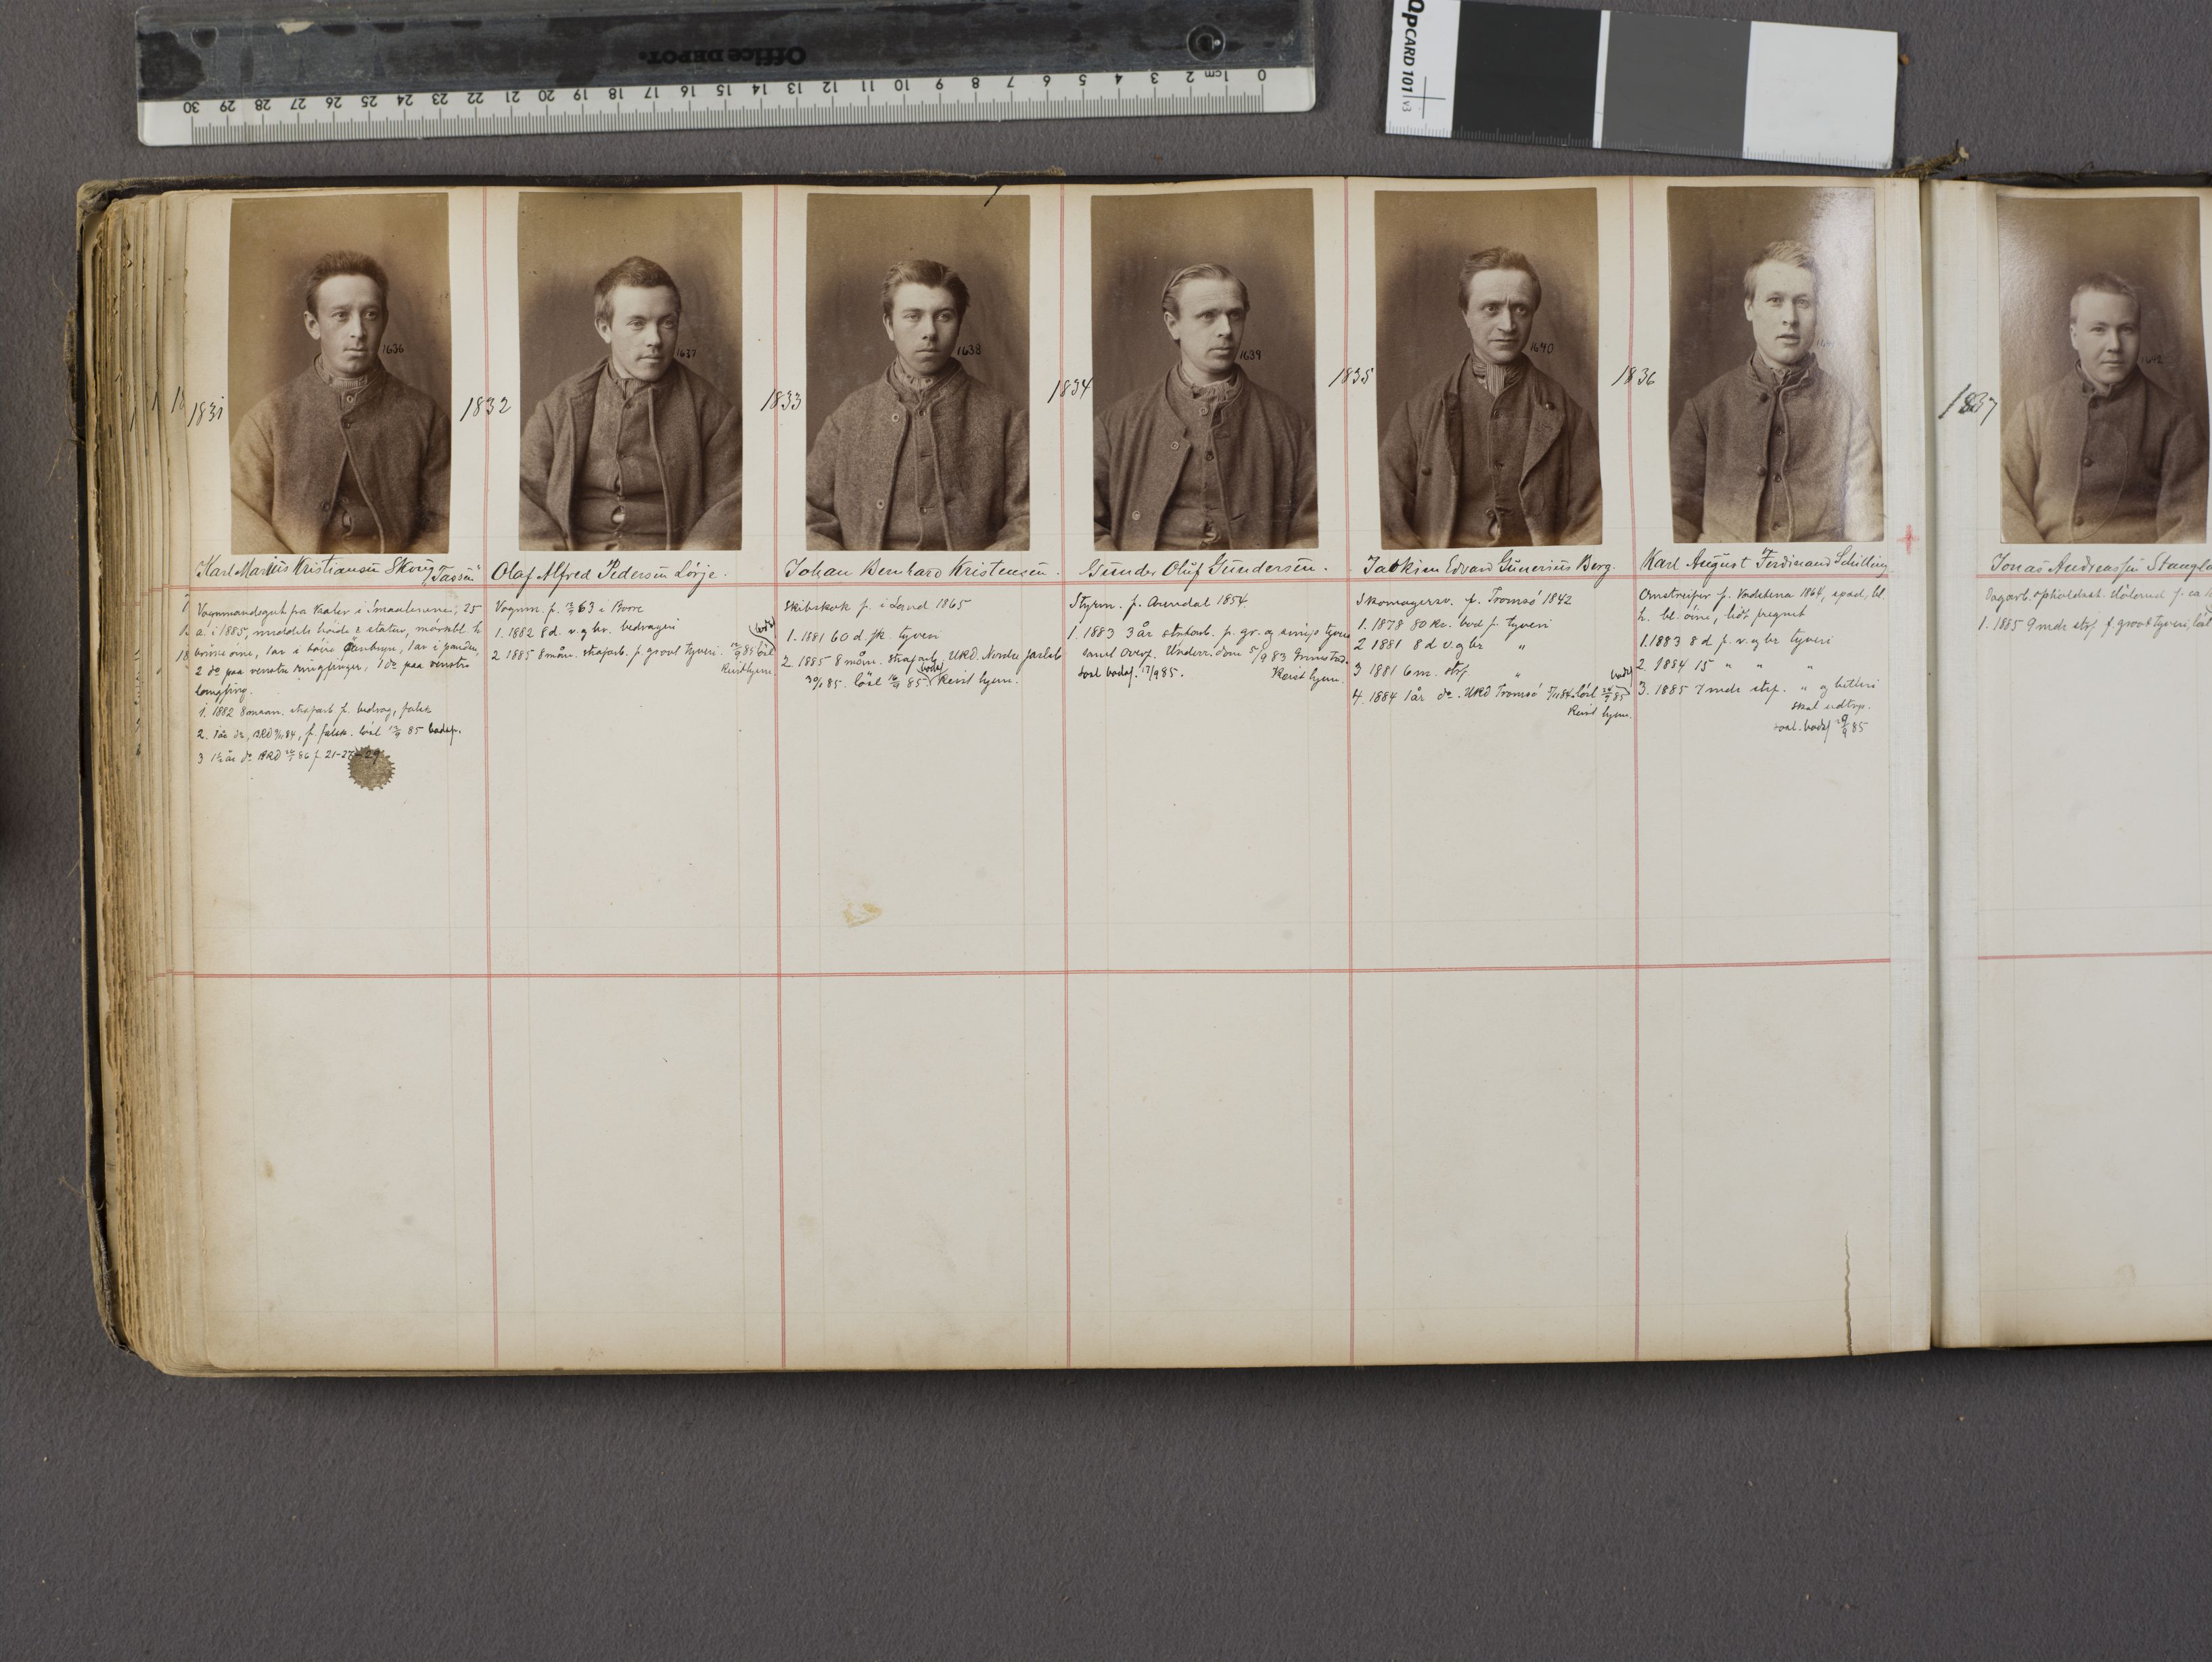 Office DEPOT.
0 1cm 2 3 4 5 6 7 8 9 10 11 12 13 14 15 16 17 18 19 20 21 22 23 24 25 26 27 28 29 30
QPCARD 101 v3
1831
1636
Karl Marius Kristiansen Skovg
"Tassen"
Vognmandsgut fra Vaaler i Smaalenene, 25
a. i 1885, middels höide & statur, mörkbl. h.
brune öine, 1 ar i höire öienbryn, 1 ar i panden,
2 do paa venstre ringfinger, 1 do paa venstre
langfing.
1. 1882 8 maan. strafarb. f. bedrag, falsk
2. 1 år do, BRD 84, f. falsk. löst 85 bodsf.
3 1½ år do BRD 86 f. 21-27-29
1832
1637
Olaf Alfred Pedersen Lörje.
Vognm. f. 63 i Borre
1. 1882 8 d. v. og br. bedrageri
2 1885 8 mån. strafarb. f. grovt tyveri. 85 löst
bodsf
Reist hjem.
1833
1638
Johan Bernhard Kristensen.
Skibskok f. i Land 1865
1. 1881 60 d. fk. tyveri
2. 1885 8 mån. strafarb. URD. Nordre Jarlsb
85. löst 85 bodsf Reist hjem.
1834
1639
Gunder Oluf Gundersen.
Styrm. f. Arendal 1854.
1. 1883 3 år strfarb. f. gr. og simp. tyveri
samt overf. Underr. dom 5/9 83 Grimstad.
Löst bodsf. 17/9 85. Reist hjem.
1835
1640
Joakim Edvard Gunerius Berg.
Skomagersv. f. Tromsö 1842
1. 1878 80 kr. bod f. tyveri
2 1881 8 d v. og br "
3 1881 6 m. strf "
4. 1884 1 år do. URD Tromsö 84. löst 85
bodsf
Reist hjem.
1836
Karl August Ferdinand Schilling.
Omstreifer f. Vadstena 1864, spæd, bl.
h. bl. öine, lidt fregnet
1. 1883 8 d f. v. og br tyveri
2. 1884 15 " " "
3. 1885 7 mdr strf. " og betleri
skal udtrsp.
Löst. bodsf 85
1837
1642
Jonas Andreassen Stangl
Dagarb. opholdsst.
1. 1885 9 mdr strf. f. grovt tyveri, löst